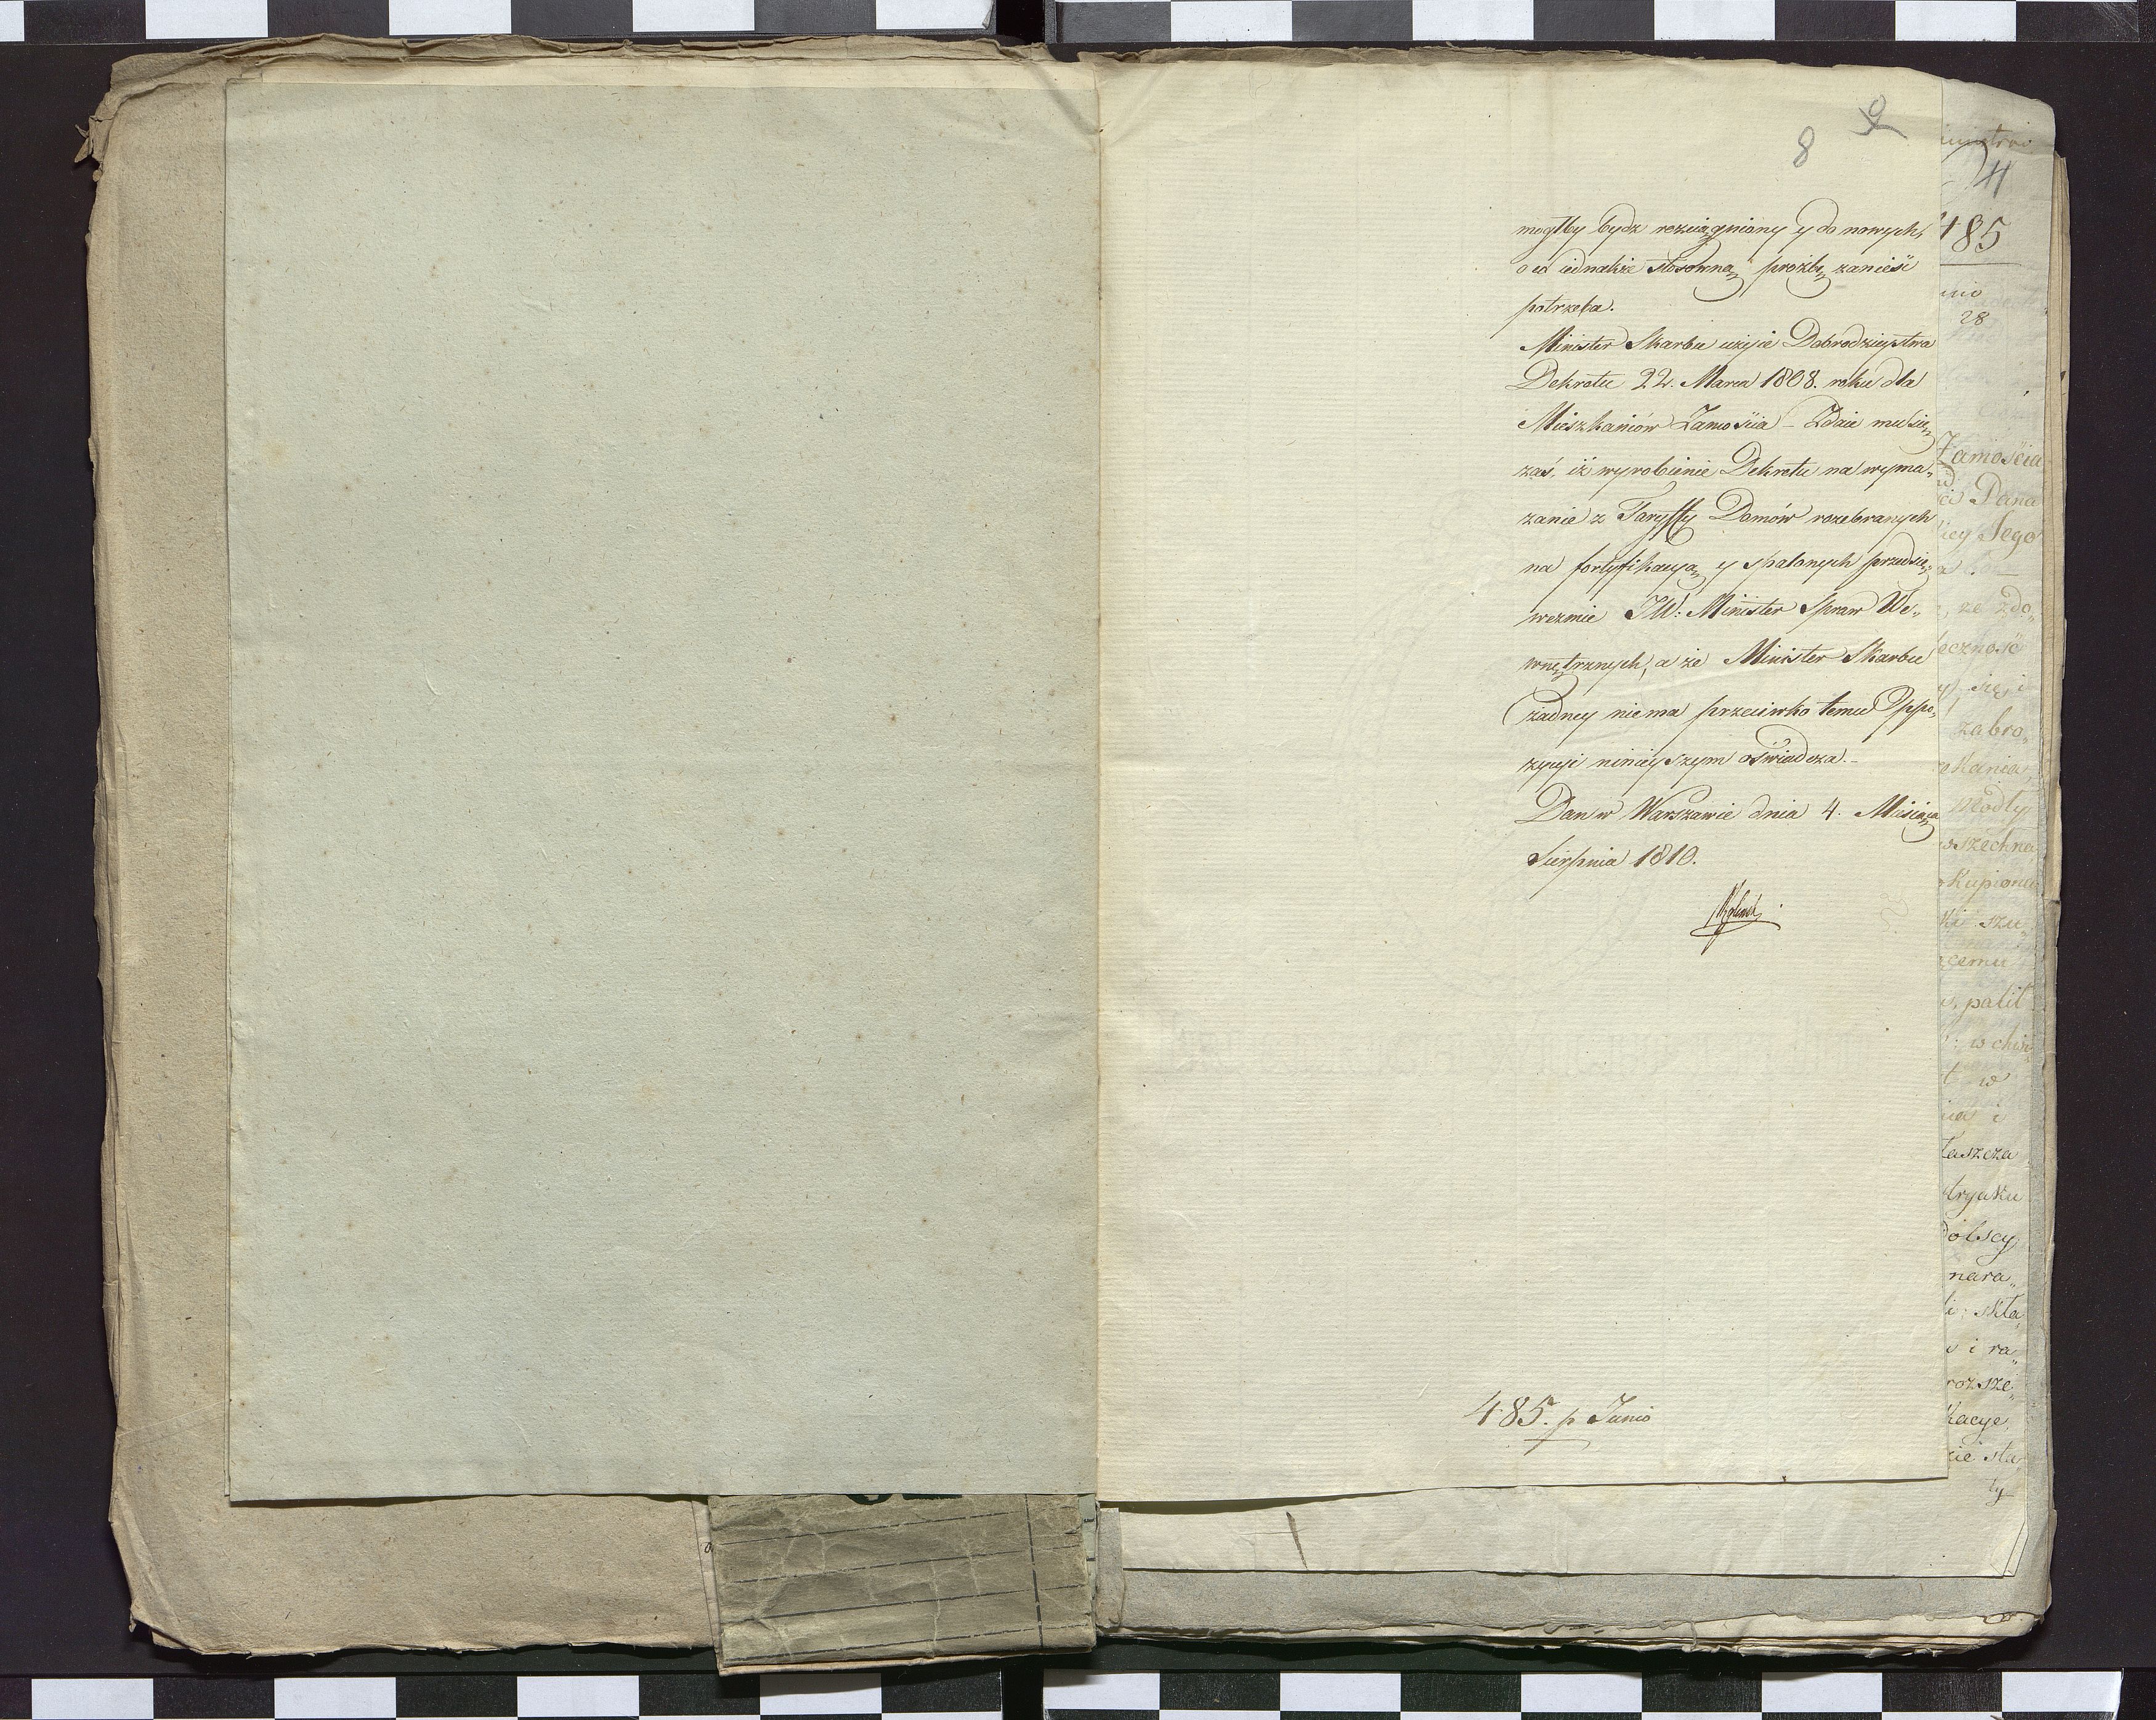 8 9
mogłby bydz rozciągniony y do nowych,
o co iednakże stosowną prożbę zanieść
potrzeba.
Minister Skarbu użyie Dobrodzieystwa
Dekretu 22. Marca 1808. roku dla
Mieszkańiów Zamościa – Zdaie mu się
zaś, iż wyrobienie Dekretu na wyma„
zanie z Taryffy Domów rozebranych
na fortyfikacyą y spalonych przedsię„
weźmie JW: Minister Spraw We„
wnętrznych, a że Minister Skarbu
żadney niema przeciwko temu Oppo„
zycyi ninieyszym oświadcza. –
Dan w Warszawie dnia 4. Miesiąca
Sierpnia 1810.
485. p Junio
4
485
nio
28
Zamościa
Pana
iey Jego
, że zdo„
eczność
zabro„
kania
Modły
wszechna
okupiona
szu„
cemu
palil
w
łaszcza
nara„
skła„
i ra„
rozsze„
kacye,